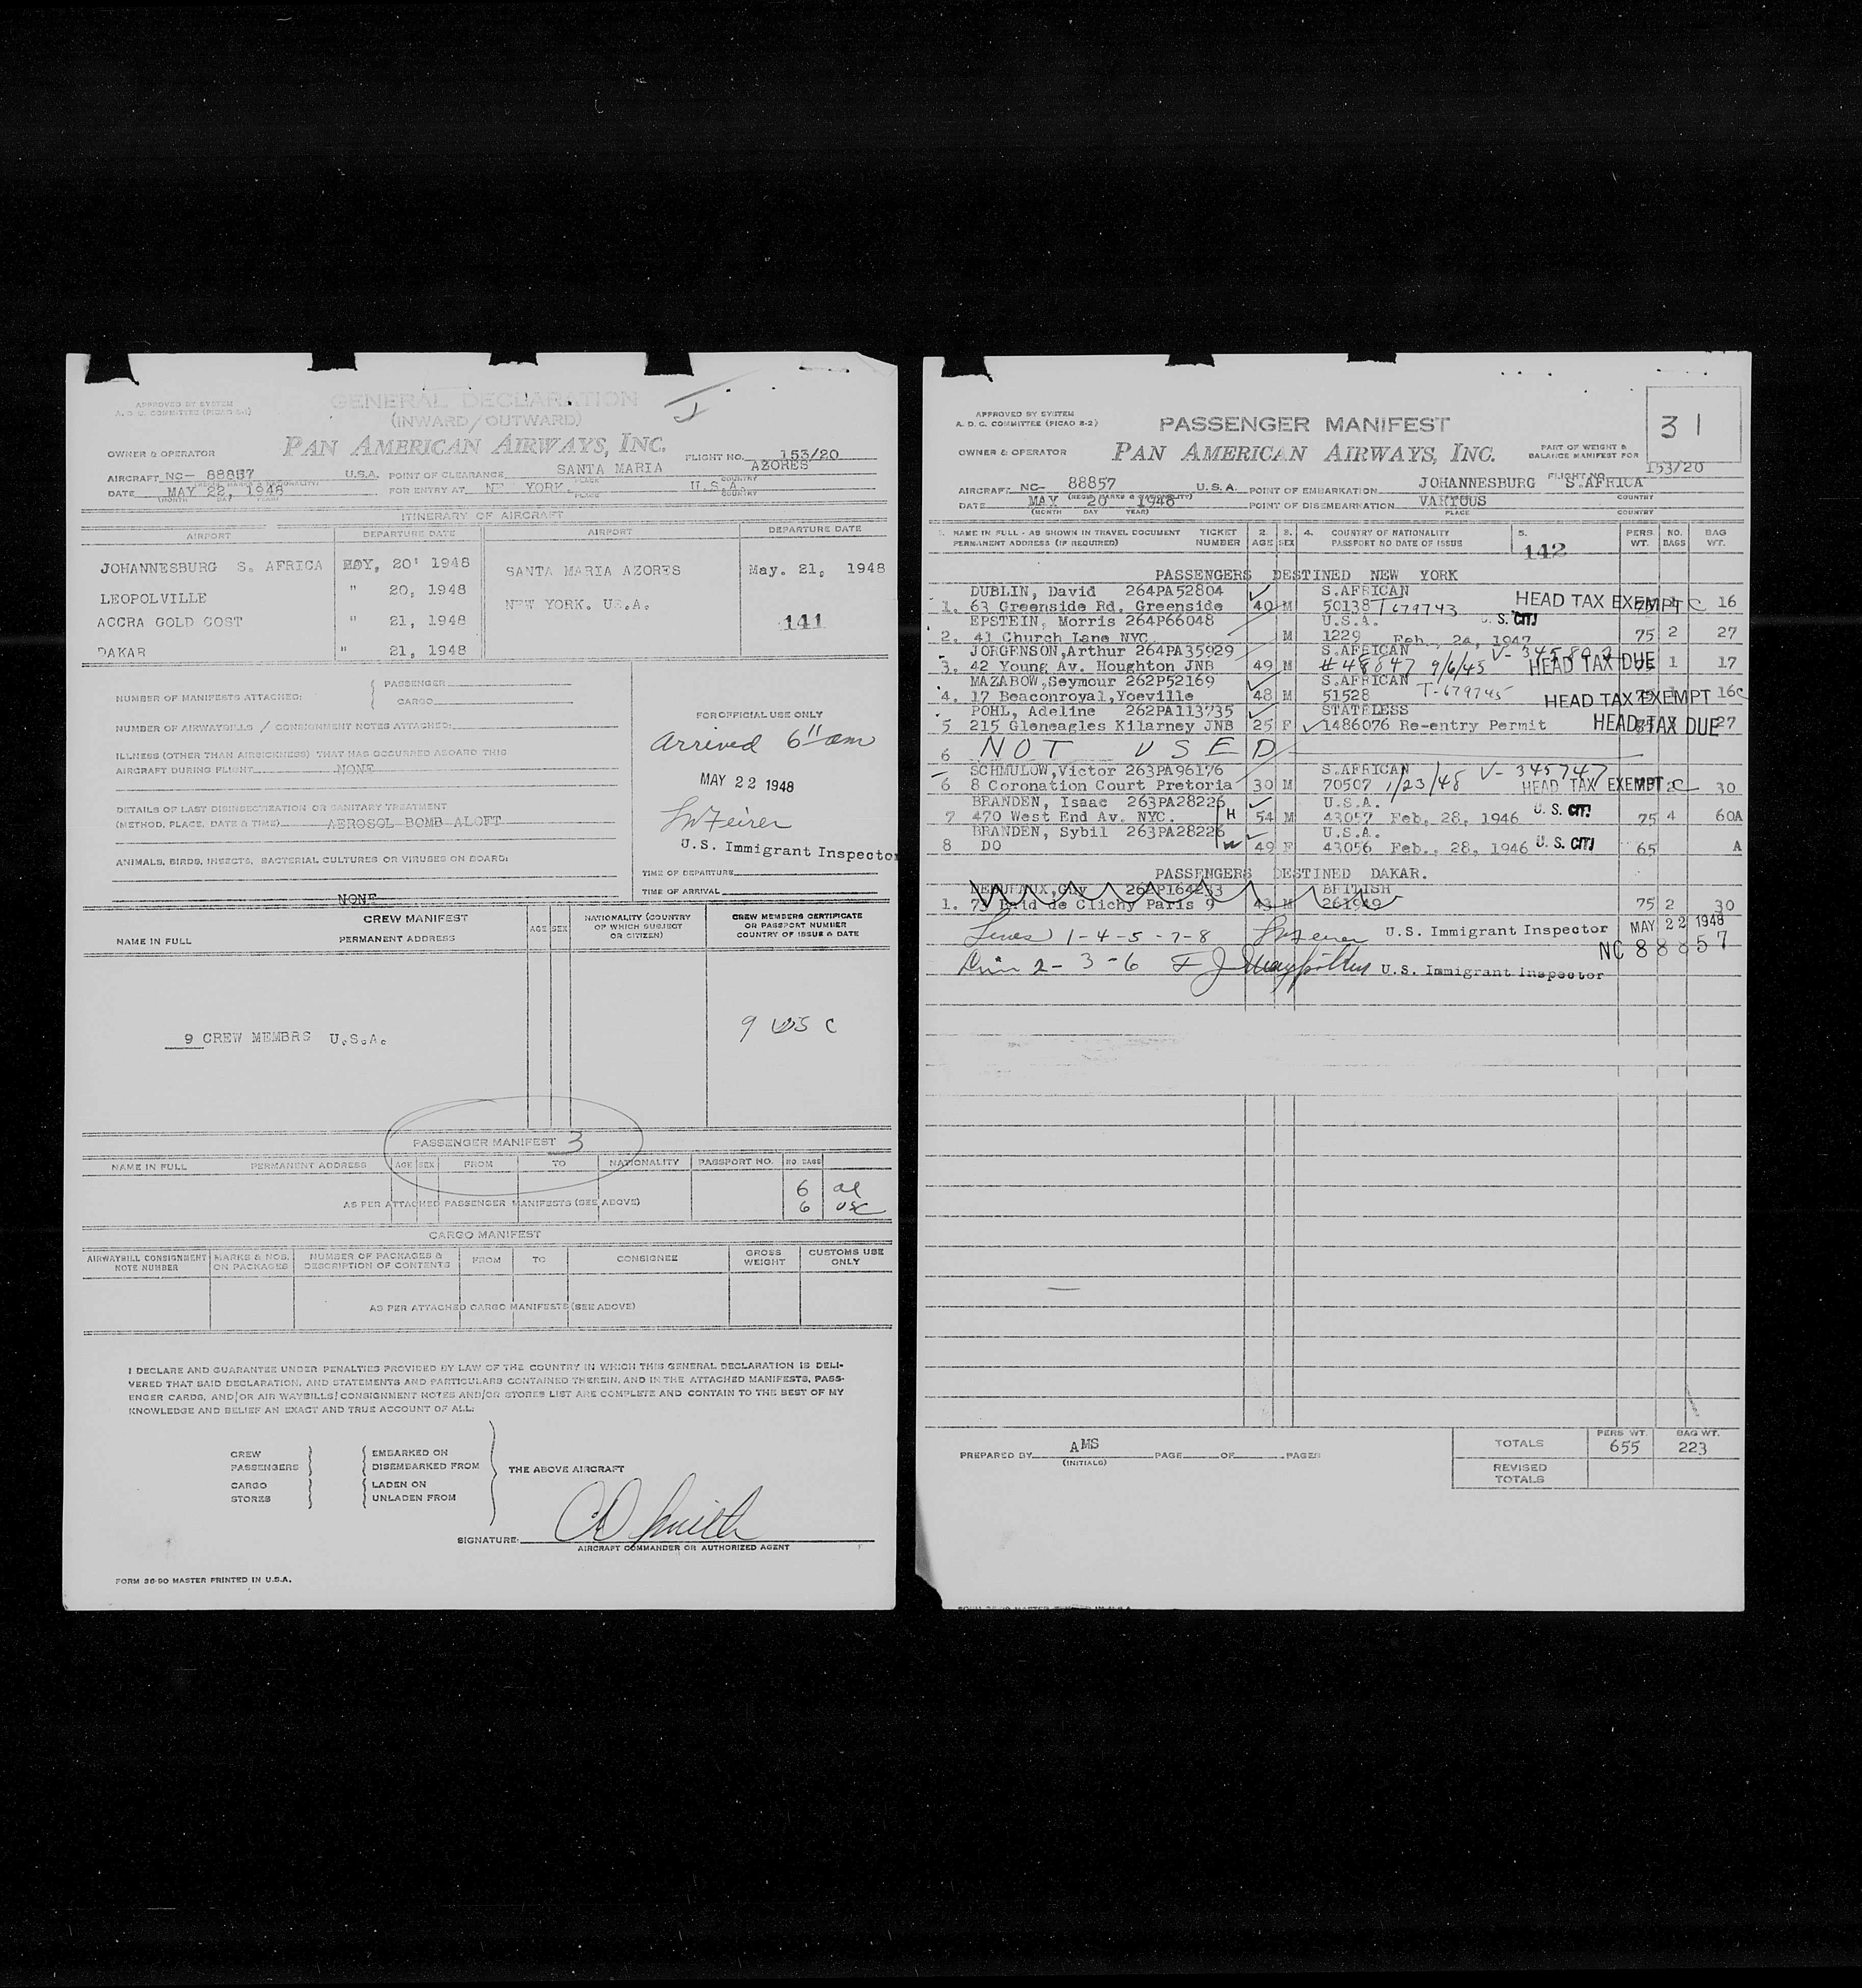 APPROVED BY SYSTEM
A. D. C. COMMITTEE (PICAO 2-1)
GENERAL DECLARATION
(INWARD/OUTWARD)
PAN AMERICAN AIRWAYS, INC.
OWNER & OPERATOR
FLIGHT NO. 153/20
AIRCRAFT NC- 88857 U.S.A. POINT OF CLEARANCE SANTA MARIA AZORES
PLACE COUNTRY
DATE MAY 22, 1948 FOR ENTRY AT YORK. U.S.A.
(MONTH DAY YEAR) PLACE COUNTRY
ITINERARY OF AIRCRAFT
AIRPORT DEPARTURE DATE AIRPORT DEPARTURE DATE
JOHANNESBURG S. AFRICA MAY, 20' 1948 SANTA MARIA AZORES May. 21, 1948
LEOPOLVILLE " 20, 1948 NEW YORK. U.S.A.
ACCRA GOLD COST " 21, 1948 141
DAKAR " 21, 1948
NUMBER OF MANIFESTS ATTACHED: PASSENGER
CARGO
NUMBER OF AIRWAYBILLS / CONSIGNMENT NOTES ATTACHED:
ILLNESS (OTHER THAN AIRSICKNESS) THAT HAS OCCURRED ABOARD THIS
AIRCRAFT DURING FLIGHT NONE
DETAILS OF LAST DISINSECTIZATION OR SANITARY TREATMENT
(METHOD, PLACE, DATE & TIME) AEROSOL BOMB ALOFT
ANIMALS, BIRDS, INSECTS, BACTERIAL CULTURES OR VIRUSES ON BOARD:
NONE
FOR OFFICIAL USE ONLY
Arrived 6 11 am
MAY 22 1948
U.S. Immigrant Inspector
TIME OF DEPARTURE
TIME OF ARRIVAL
CREW MANIFEST
NAME IN FULL PERMANENT ADDRESS AGE SEX NATIONALITY (COUNTRY OF WHICH SUBJECT OR CITIZEN) CREW MEMBERS CERTIFICATE OR PASSPORT NUMBER COUNTRY OF ISSUE & DATE
9 CREW MEMBRS U.S.A. 9 US C
PASSENGER MANIFEST 3
NAME IN FULL PERMANENT ADDRESS AGE SEX FROM TO NATIONALITY PASSPORT NO. NO. BAGS
6 al
AS PER ATTACHED PASSENGER MANIFESTS (SEE ABOVE) 6 usc
CARGO MANIFEST
AIRWAYBILL CONSIGNMENT NOTE NUMBER MARKS & NOS. ON PACKAGES NUMBER OF PACKAGES & DESCRIPTION OF CONTENTS FROM TO CONSIGNEE GROSS WEIGHT CUSTOMS USE ONLY
AS PER ATTACHED CARGO MANIFESTS (SEE ABOVE)
I DECLARE AND GUARANTEE UNDER PENALTIES PROVIDED BY LAW OF THE COUNTRY IN WHICH THIS GENERAL DECLARATION IS DELI-
VERED THAT SAID DECLARATION, AND STATEMENTS AND PARTICULARS CONTAINED THEREIN, AND IN THE ATTACHED MANIFESTS, PASS-
ENGER CARDS, AND/OR AIR WAYBILLS/CONSIGNMENT NOTES AND/OR STORES LIST ARE COMPLETE AND CONTAIN TO THE BEST OF MY
KNOWLEDGE AND BELIEF AN EXACT AND TRUE ACCOUNT OF ALL:
CREW EMBARKED ON
PASSENGERS DISEMBARKED FROM THE ABOVE AIRCRAFT
CARGO LADEN ON
STORES UNLADEN FROM
SIGNATURE: CD Smith
AIRCRAFT COMMANDER OR AUTHORIZED AGENT
FORM 36-90 MASTER PRINTED IN U.S.A.
APPROVED BY SYSTEM
A. D. C. COMMITTEE (PICAO 2-2)
PASSENGER MANIFEST
31
PAN AMERICAN AIRWAYS, INC.
OWNER & OPERATOR
PART OF WEIGHT & BALANCE MANIFEST FOR
FLIGHT NO. 153/20
AIRCRAFT NC- 88857 U.S.A. POINT OF EMBARKATION JOHANNESBURG S.AFRICA
DATE MAY 20 1948 POINT OF DISEMBARKATION VARIOUS
(MONTH DAY YEAR) PLACE COUNTRY
1. NAME IN FULL - AS SHOWN IN TRAVEL DOCUMENT TICKET NUMBER 2. AGE 3. SEX 4. COUNTRY OF NATIONALITY 5. PERS. WT. NO. BAGS BAG WT.
PERMANENT ADDRESS (IF REQUIRED) PASSPORT NO DATE OF ISSUE 142
PASSENGERS DESTINED NEW YORK
DUBLIN, David 264PA52804 S.AFRICAN
1. 63 Greenside Rd. Greenside 40 M 50138 T679743 HEAD TAX EXEMPT C 16
EPSTEIN, Morris 264P66048 U.S.A. U. S. CIT.
2. 41 Church Lane NYC M 1229 Feb., 1947 75 2 27
JORGENSON,Arthur 264PA35929 S.AFRICAN
3. 42 Young Av. Houghton JNB 49 M #48847 9/6/45 HEAD TAX DUE 1 17
MAZABOW,Seymour 262P52169 S.AFRICAN
4. 17 Beaconroyal,Yoeville 48 M 51528 T-679745 HEAD TAX EXEMPT 16C
POHL, Adeline 262PA113735 STATELESS
5 215 Gleneagles Kilarney JNB 25 F 1486076 Re-entry Permit HEAD TAX DUE 27
6 NOT USED
SCHMULOW,Victor 263PA96176 S.AFRICAN V-345747
6 8 Coronation Court Pretoria 30 M 70507 1/23/48 HEAD TAX EXEMPT C 30
BRANDEN, Isaac 263PA28226 U.S.A.
7 470 West End Av. NYC. H 54 M 43057 Feb. 28, 1946 U. S. CIT. 75 4 60A
BRANDEN, Sybil 263PA28226 U.S.A.
8 DO W 49 F 43056 Feb., 28, 1946 U. S. CIT. 65 A
PASSENGERS DESTINED DAKAR.
262P164233 BRITISH
1. de Clichy Paris 9 43 M 261949 75 2 30
Lines 1-4-5-7-8 U.S. Immigrant Inspector MAY 22 1948
NC 88857
2-3-6 U.S. Immigrant Inspector
PREPARED BY AMS PAGE OF PAGES
(INITIALS)
PERS WT. BAG WT.
TOTALS 655 223
REVISED TOTALS